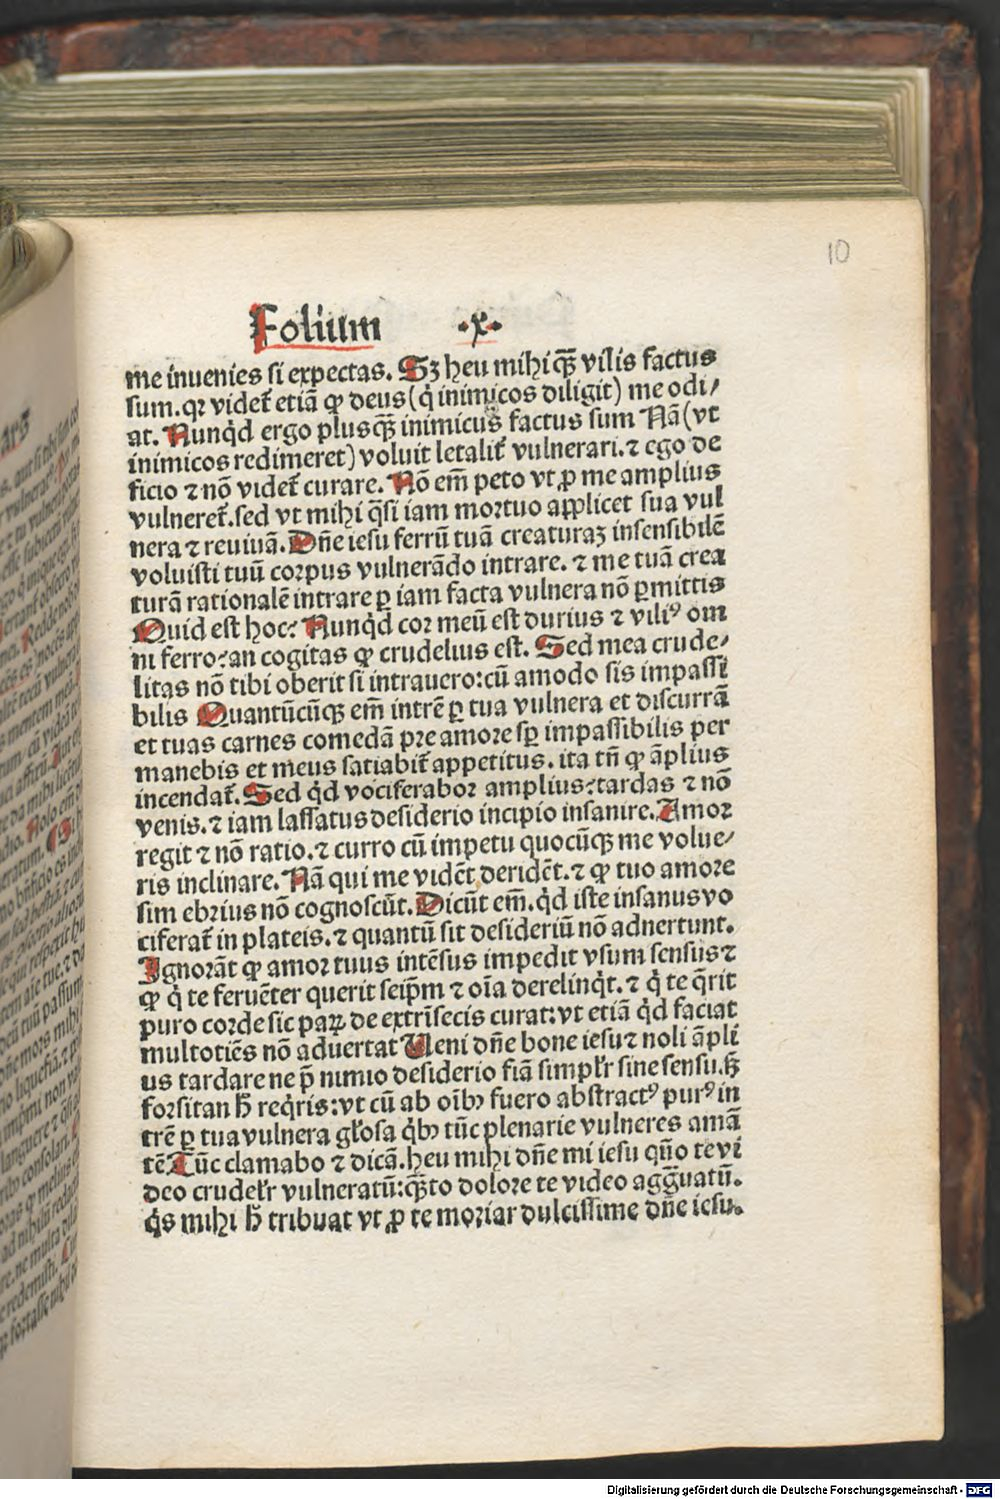 10
Folium ·x·
me inuenies si expectas. Sꝫ heu mihi qꝫ̄ vilis factus
sum. qꝛ videt᷑ etiā ꝙ deus (q̇ inimicos diligit) me odi/
at. Nunq̇d ergo plusqꝫ̄ inimicus factus sum Nā (vt
inimicos redimeret) voluit letalit᷑ vulnerari. ⁊ ego de
ficio ⁊ nō videt᷑ curare. Nō em̄ peto vt ꝓ me amplius
vulneret᷑. sed vt mihi q̄si iam mortuo applicet sua vul
nera ⁊ reuiuā. Dn̄e iesu ferrū tuā creaturaꝫ insensibilē
voluisti tuū corpus vulnerādo intrare. ⁊ me tuā crea
turā rationalē intrare ꝑ iam facta vulnera nō ꝑmittis
Quid est hoc? Nunq̇d cor meū est durius ⁊ viliꝰ om
ni ferro? an cogitas ꝙ crudelius est. Sed mea crude/
litas nō tibi oberit si intrauero: cū amodo sis impassi
bilis Quantūcūqꝫ em̄ intrē ꝑ tua vulnera et discurrā
et tuas carnes comedā pre amore sꝑ impassibilis per
manebis et meus satiabit᷑ appetitus. ita tn̄ ꝙ āplius
incendat᷑. Sed q̇d vociferabor amplius? tardas ⁊ nō
venis. ⁊ iam lassatus desiderio incipio insanire. Amor
regit ⁊ nō ratio. ⁊ curro cū impetu quocūqꝫ me volue/
ris inclinare. Nā qui me vidēt deridēt. ⁊ ꝙ tuo amore
sim ebrius nō cognoscūt. Dicūt em̄. q̇d iste insanus vo
ciferat᷑ in plateis. ⁊ quantū sit desideriū nō adnertunt.
Ignorāt ꝙ amor tuus intēsus impedit vsum sensus ⁊
ꝙ q̇ te feruēter querit seip̄m ⁊ oīa derelinq̇t. ⁊ q̇ te q̄rit
puro corde sic paꝝ de extrīsecis curat: vt etiā q̇d faciat
multotiēs nō aduertat Ueni dn̄e bone iesu ⁊ noli āpli
us tardare ne p̄ nimio desiderio fiā simpl̓r sine sensu. sꝫ
forsitan h̄ req̇ris: vt cū ab oībꝫ fuero abstractꝰ purꝰ in
trē ꝑ tua vulnera gl̓osa q̇bꝫ tūc plenarie vulneres amā
tē Tūc clamabo ⁊ dicā. heu mihi dn̄e mi iesu qūo te vi
deo crudel̓r vulneratū: qꝫ̄to dolore te video aggͣuatū.
q̇s mihi h̄ tribuat vt ꝓ te moriar dulcissime dn̄e iesu.
Digitalisierung gefördert durch die Deutsche Forschungsgemeinschaft - DFG